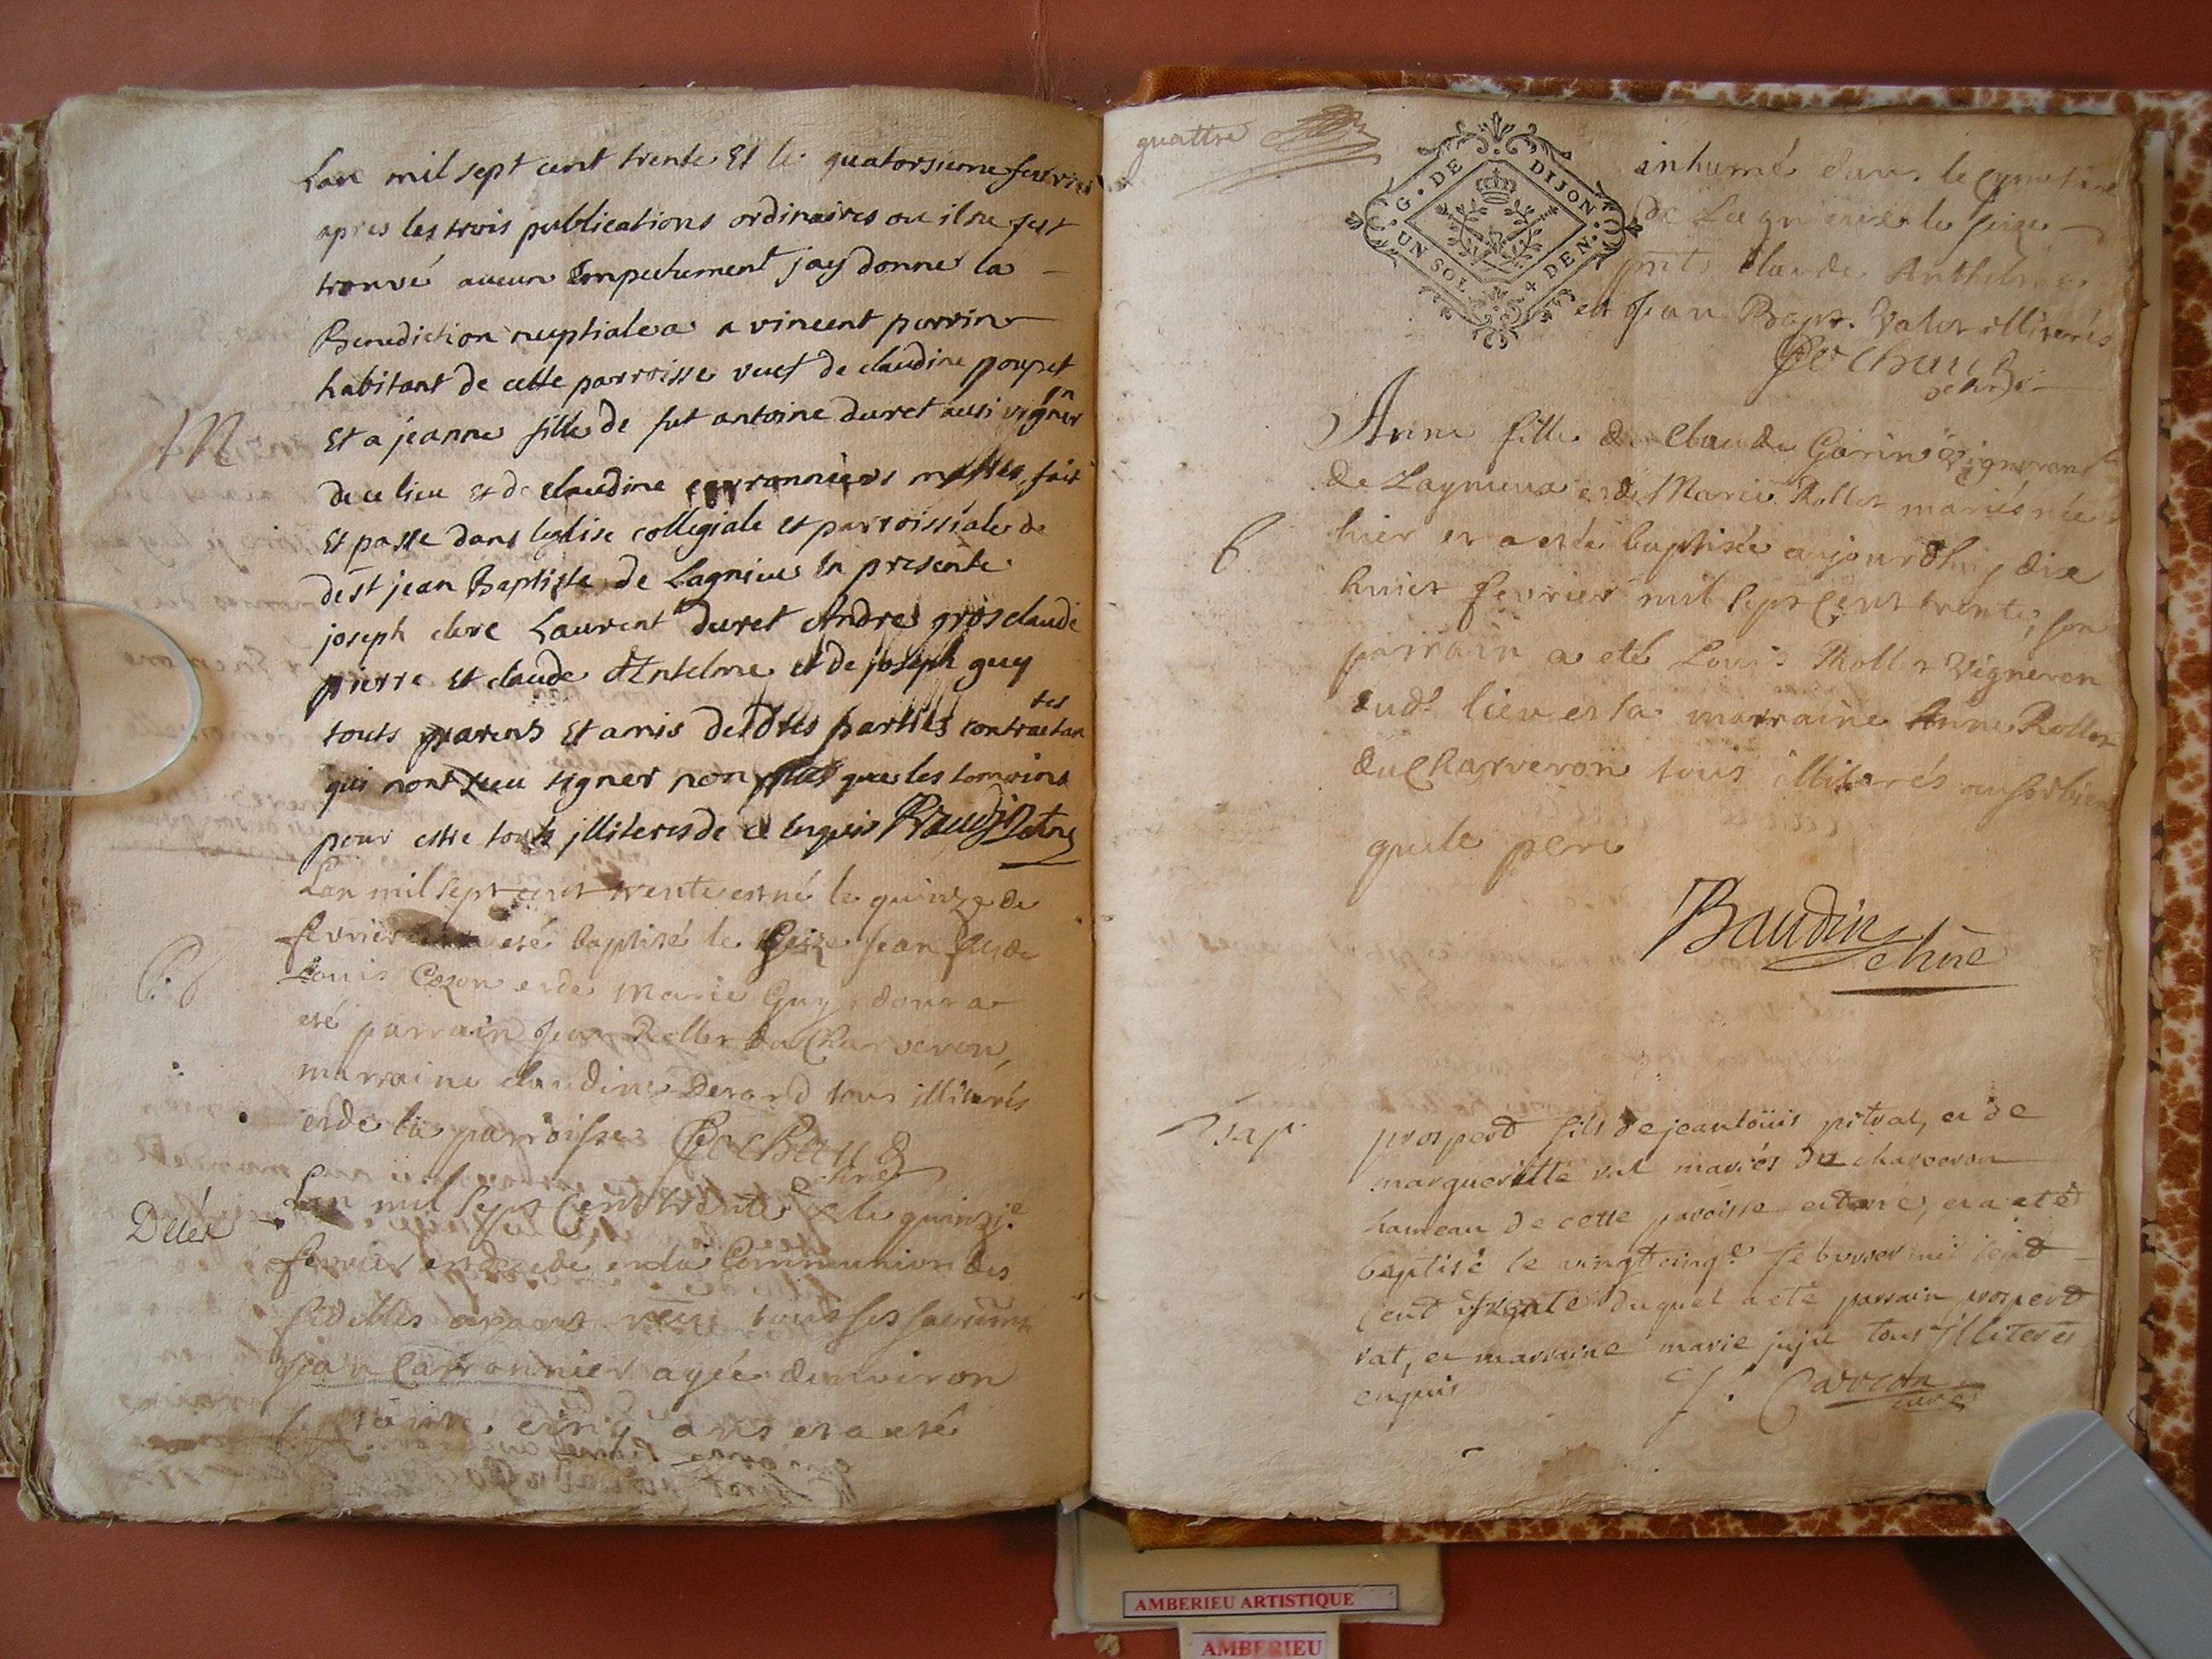 Lan mil sept cent trente Et le quatorsieme fevrier
apres les trois publications ordinaires ou il ne sest
trouvé aucun Empechement jay donné la
Benediction nuptialea a vincent perrin
habitant de cette parroisse veuf de claudine poupet
M
Et a jeanne fille de fut antoine duret ausi vigner
on
de ce lieu et de claudine carronniers mesties fait
Et passe dans leglise collegiale et parroissiale de
de st jean Baptiste de Lagnieu En presente
joseph clere Laurent duret Andre grosclaude
pierre et claude Antelme et de joseph guy
touts parents Et amis desdttes parties contractan
tes
qui nont sceu signer non plus que les temoins
pour estre touts jlliteres de ce enquis Baudin
Lan mil sept cent trente est né le quinze de
fevrier eté baptisé le seize jean fils de
B.
Louis Cozon et de Marie Guy dont a
eté parrain Jean Rollet du Charveron,
marraine claudine Derard tous illiterés
et de la parroisse
Décés
Lan mil sept Cent trente & le quinzie
fevrier est decedé en la Communion des
fidelles ayant receu tous ses sacrems
jean Carronnier agée denviron
cinq ans et a eté
quattre
G. DE DIJON
UN SOL 4 DEN.
inhumé dans le cymetiere
de Lagnieux le seize
pnts Claude Anthelme
et Jean Bapt. Valet illiterés
Anne fille de Claude Garin vigneron
de Laynieux et de Marie Rollet mariés née
b.
hier et a etée baptisée aujourdhuy dix
huict fevrier mil sept cent trente, son
parrain a eté Louis Rollet vigneron
dudt lieu et la marraine Anne Rollet
du Charveron tous illiterés aussi bien
que le pere
Baudin
Bap.
prosperd fils de jeanlouis pitrat, et de
margueritte rat mariés du charveron
hameau de cette paroisse est né, et a eté
baptisé le vingtcinqe febvrier mil sept
cent trente duquel a eté parrain prosperd
rat, et marraine marie juju tous jlliterés
enquis
J. Carron
curé
AMBERIEU ARTISTIQUE
AMBERIEU